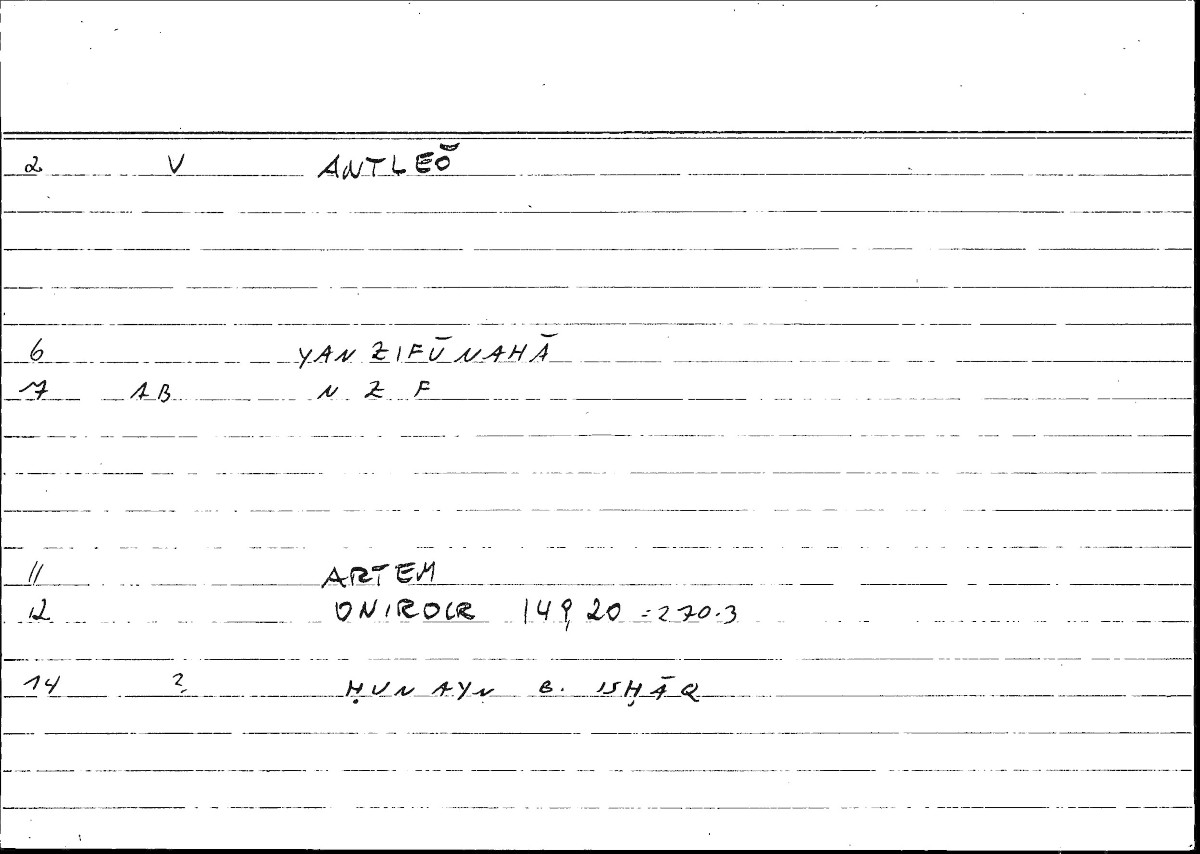 2 V ANTLEŌ
6 YANZIFŪNAHĀ
7 AB N Z F
11 ARTEM
12 ONIROCR 149, 20 = 270.3
14 ? ḤUNAYN B. ISḤĀQ